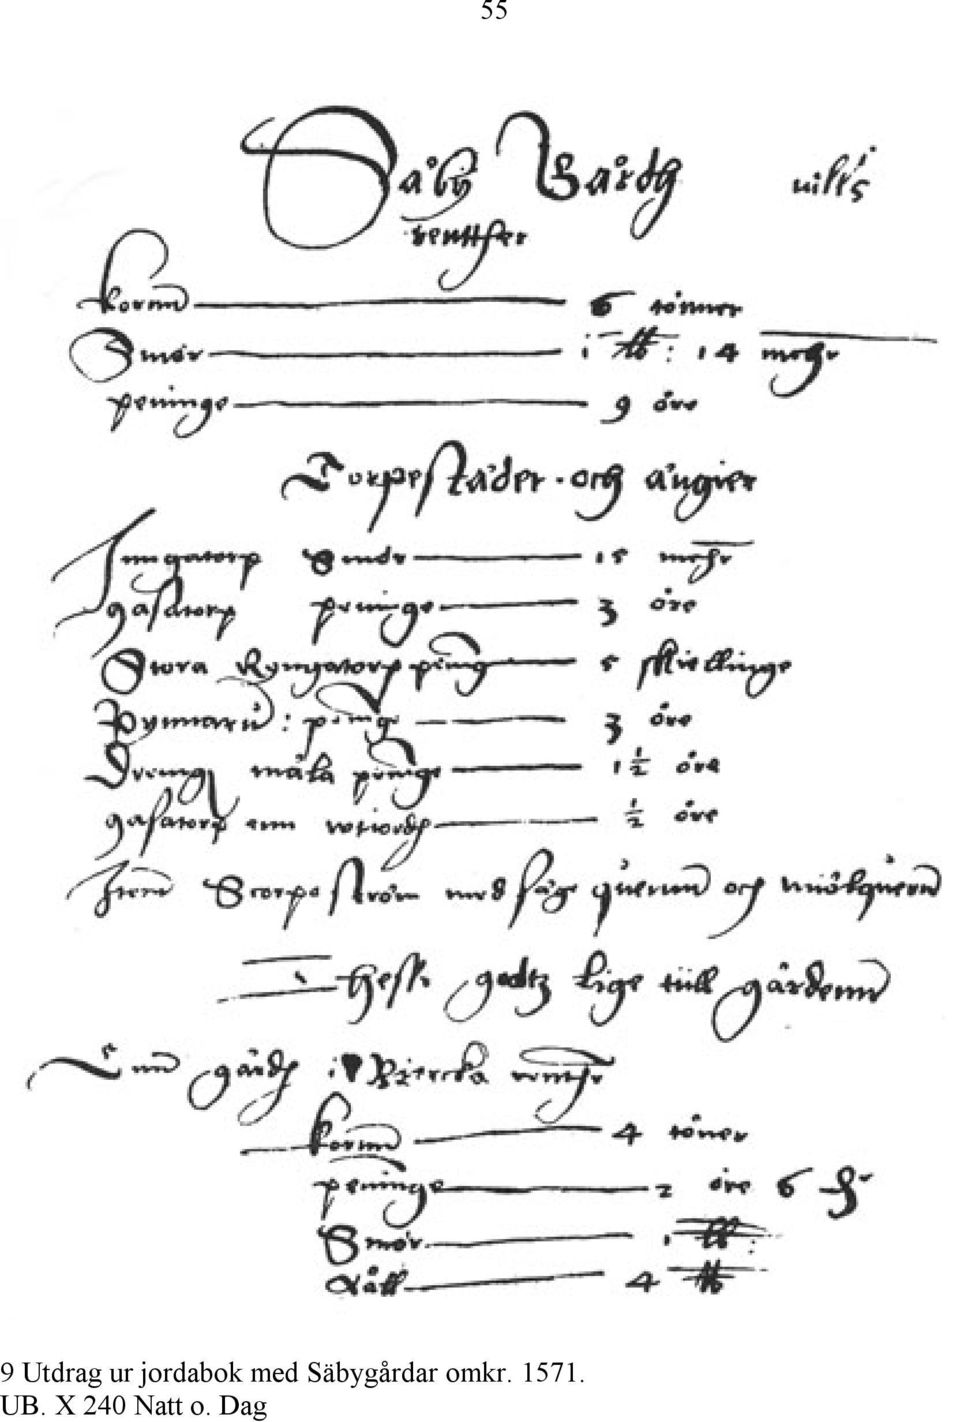 55
Säby Gårdh
rentther
kornn 6 tönner
Smör 1 ℔: 14 mchr
peninge 9 öre
Torpestäder och ängier
Inngatorp Smör 15 mchr
gasatorp peninge 3 öre
Stora Ryngatorp pening 5 skiellinge
3 öre
Dreng måla peninge 1½ öre
gasatorp enn ½ öre
Item Storpe ström med såge quernn och miölquernn
godtz lige till gårdenn
Enn gårdh i renther
kornn 4 töner
peninge 2 öre 6
Smör 1 ℔:
4 ℔
9 Utdrag ur jordabok med Säbygårdar omkr. 1571.
UB. X 240 Natt o. Dag